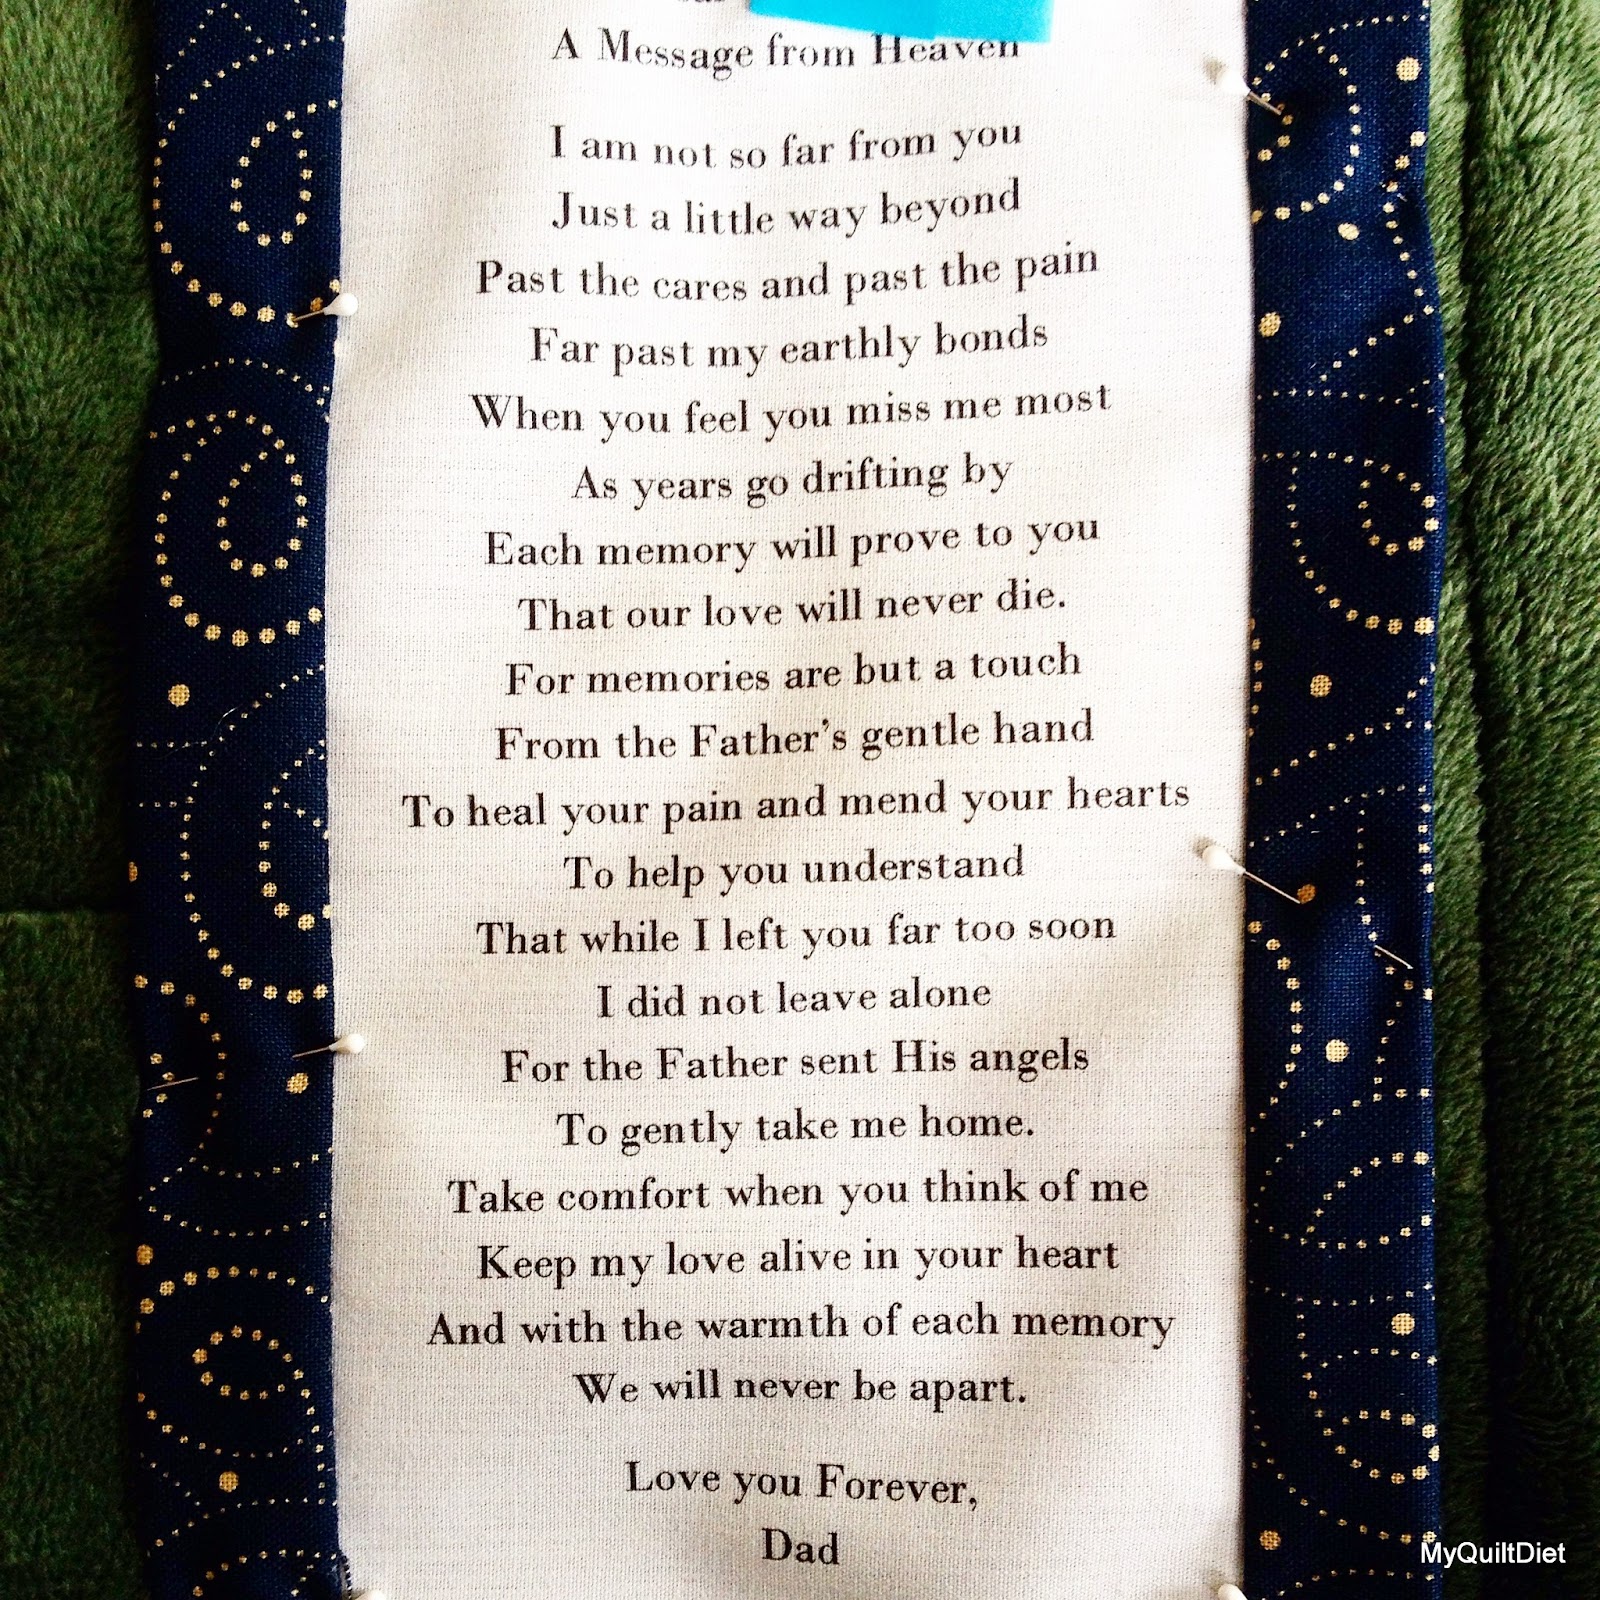 A Message from Heaven
I am not so far from you
Just a little way beyond
Past the cares and past the pain
Far past my earthly bonds
When you feel you miss me most
As years go drifting by
Each memory will prove to you
That our love will never die.
For memories are but a touch
From the Father's gentle hand
To heal your pain and mend your hearts
To help you understand
That while I left you far too soon
I did not leave alone
For the Father sent His angels
To gently take me home.
Take comfort when you think of me
Keep my love alive in your heart
And with the warmth of each memory
We will never be apart.
Love you Forever,
Dad
MyQuiltDiet